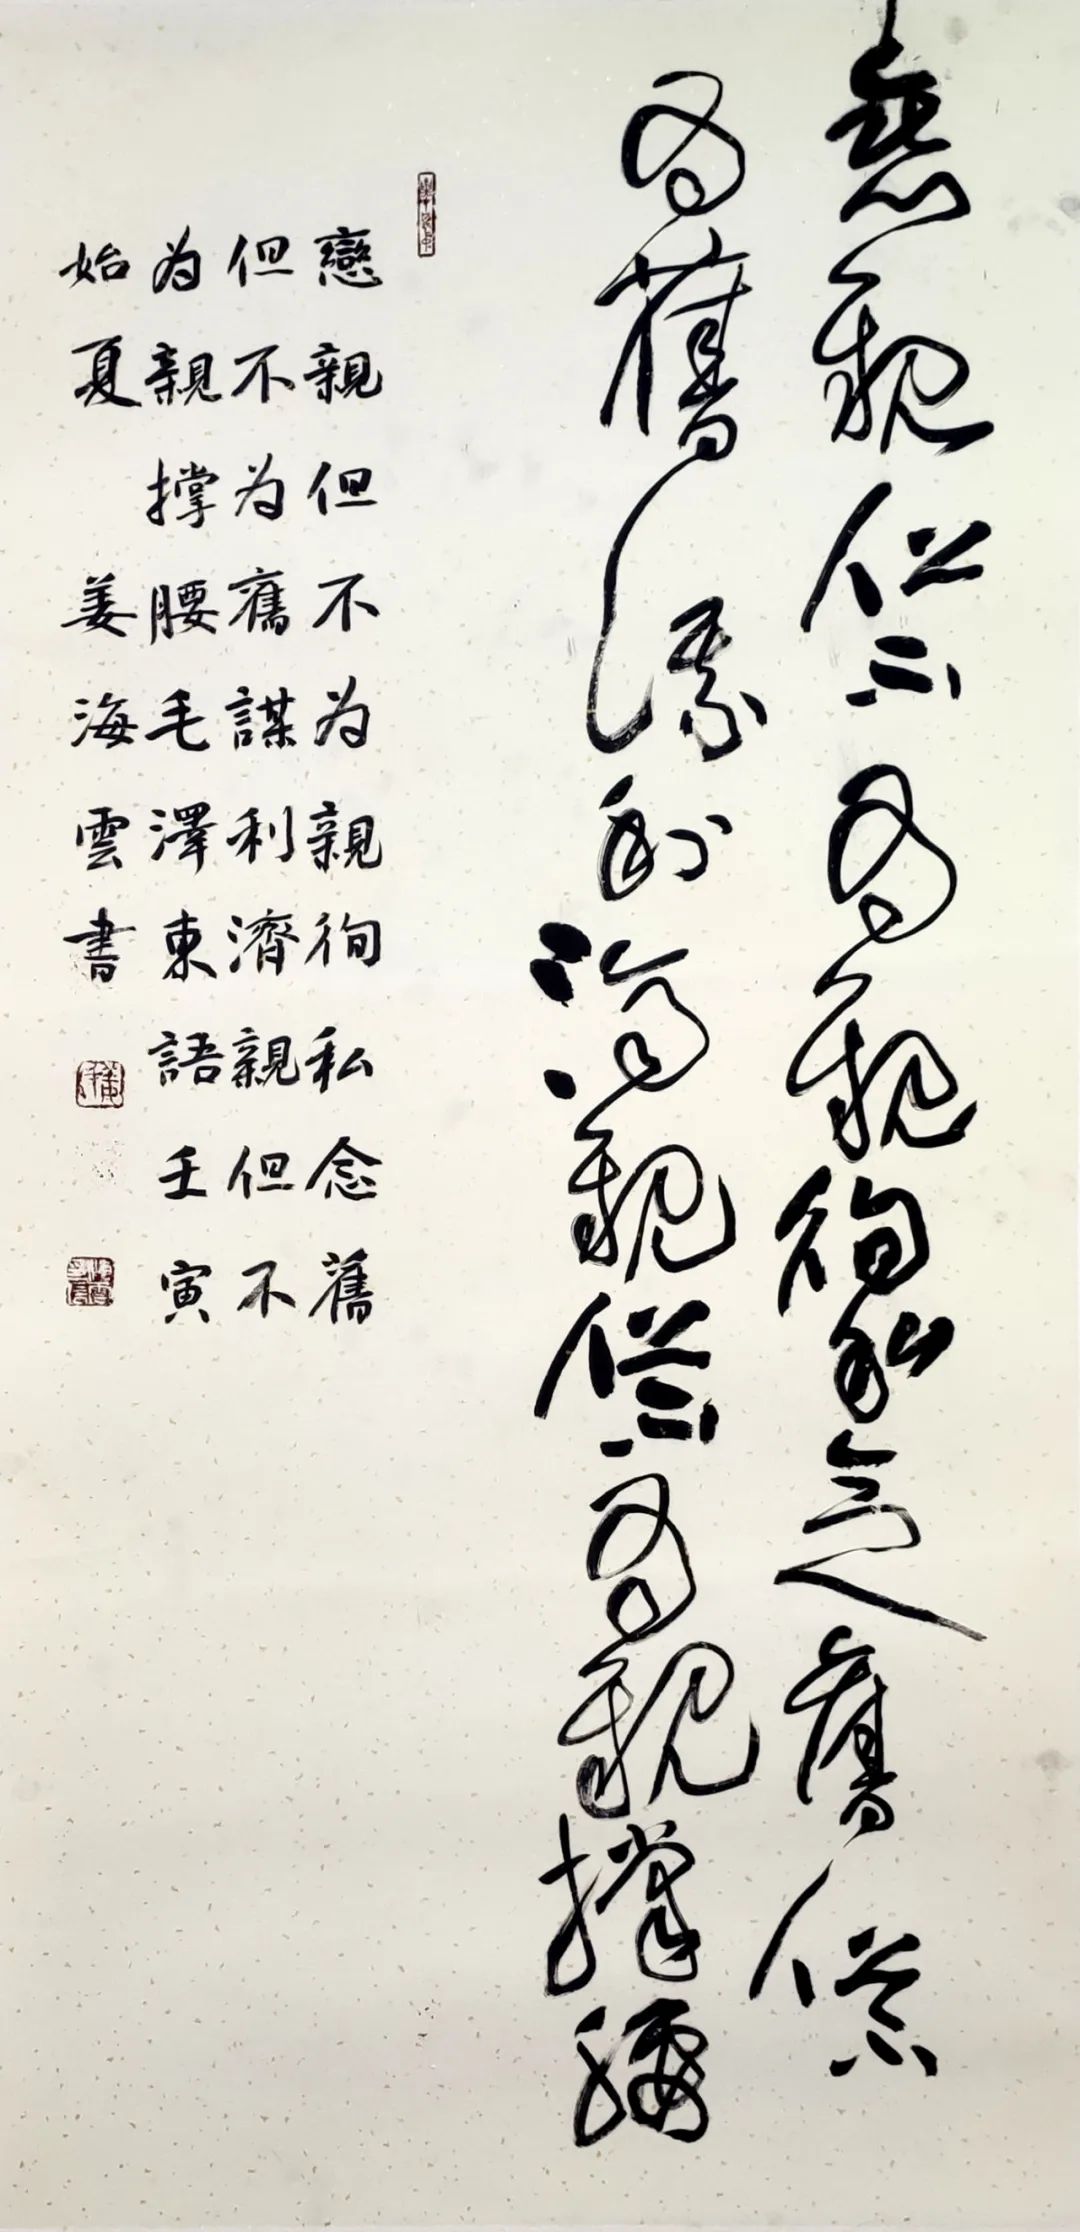 戀親但不為親徇私念舊但不
為舊謀利濟親但不為親撐腰
戀親但不為親徇私念舊
但不為舊謀利濟親但不
為親撐腰毛澤東語壬寅
始夏 姜海雲書